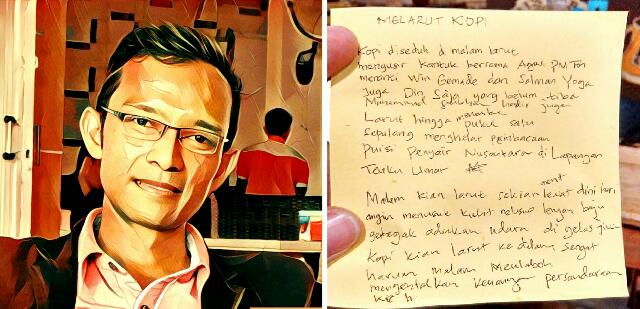 MELARUT KOPI
Kopi diseduh d malam larut
mengusir kantuk bersama Agus PMToh
menanti Win Gemade dan Salman Yoga
Juga Din Saja yang belum tiba
Muhammad hadir juga
Larut hingga menembus pukul satu
Sepulang menghelat pembacaan
Puisi Penyair Nusantara di Lapangan
Teuku Umar
Malam kian larut sekian lewat dini hari
angin menusuk kulit lengan baju
adukan udara di gelas
Kopi kian larut ke dalam
haruan malam Meulaboh
mengentalkan kenangan persaudaraan